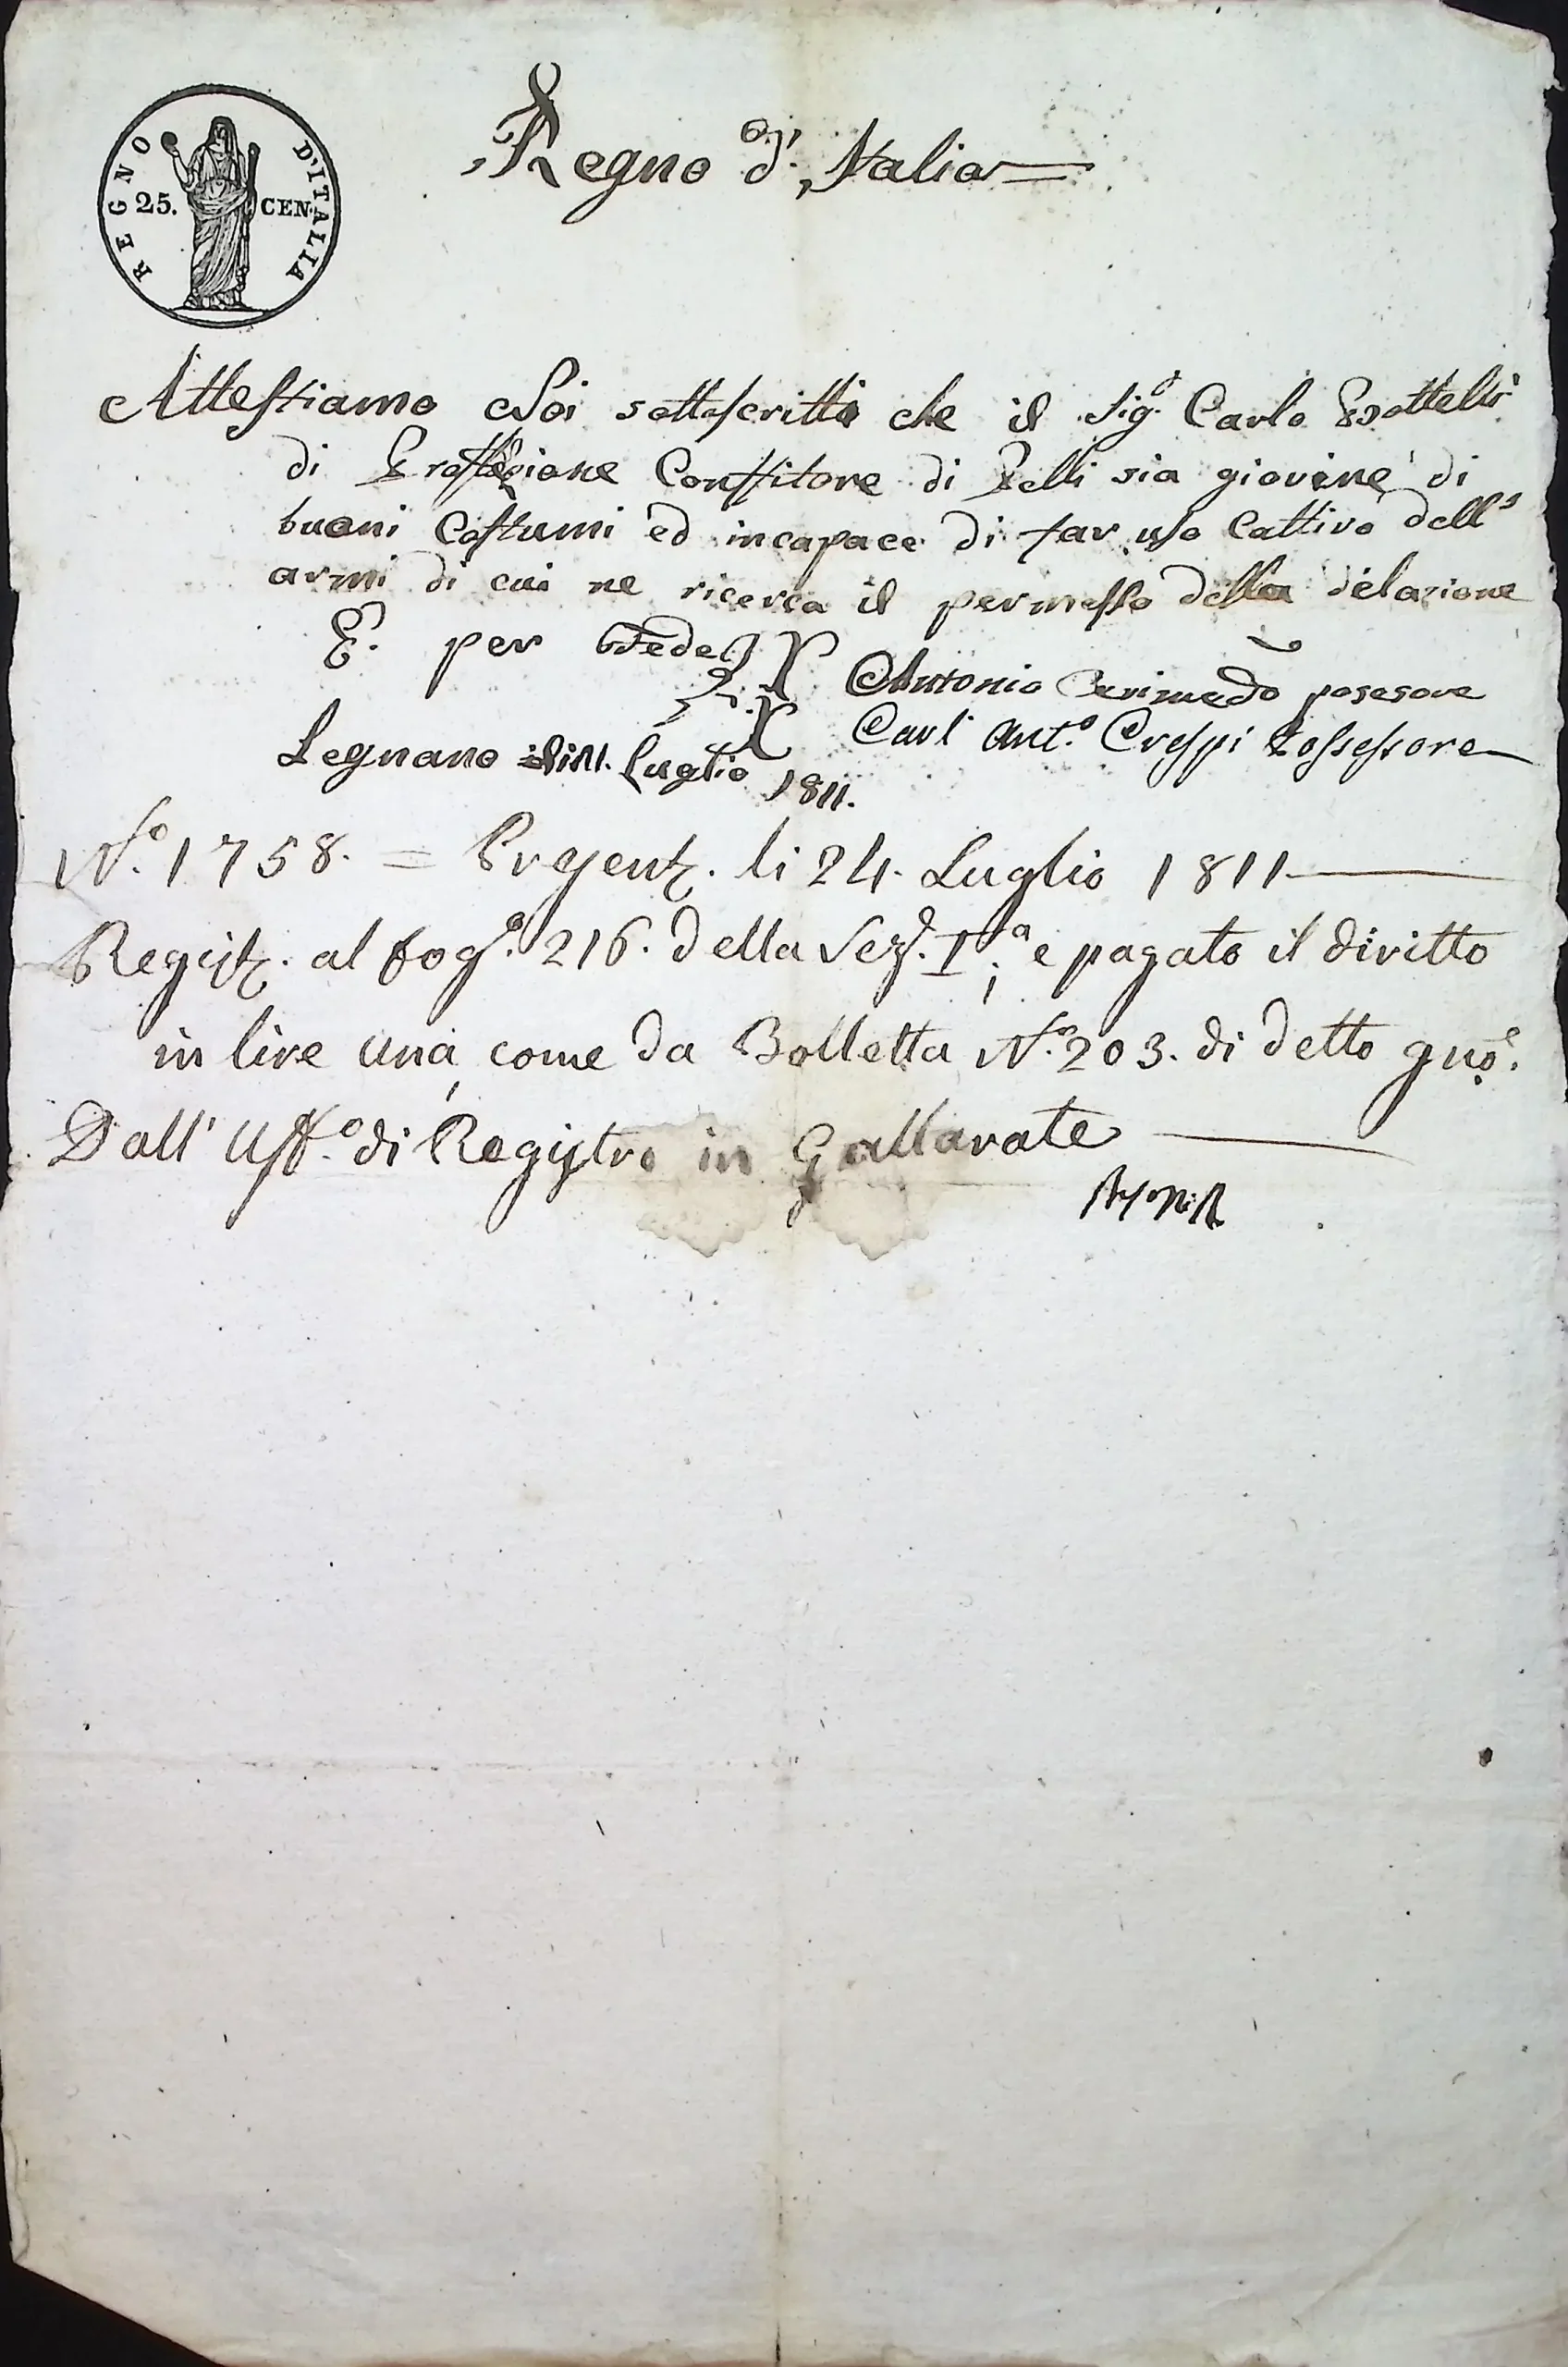 REGNO D'ITALIA
25. CEN.
Regno d'Italia
Attestiamo Noi sottoscritti che il Sig.r Carlo
di Professione Confitore di Pelli sia giovine di
buoni Costumi ed incapace di far uso Cattivo dell'
armi di cui ne ricerca il permesso della delazione
E. per Fede
Antonio posesore
Carl' Ant.o Crespi Possessore
Legnano Luglio 1811.
N.o 1758. = li 24. Luglio 1811
Regist. al fog.o 216. della Sez. I.a, e pagato il diritto
in lire una, come da Bolletta N.o 203. di detto gno.
Dall' Uff.o di Registro in Gallarate